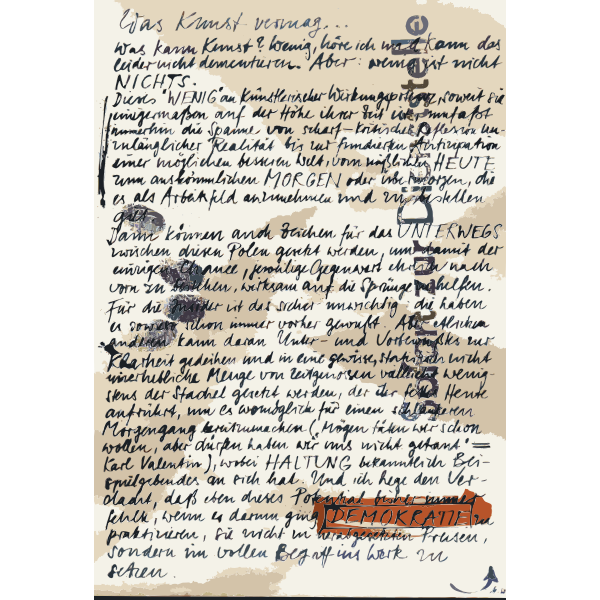 Was Kunst vermag...
Was kann Kunst? Wenig, höre ich und kann das
leider nicht dementieren. Aber: wenig ist nicht
NICHTS.
Dieses "WENIG" an künstlerischer Wirkungs soweit sie
einigermaßen auf der Höhe ihrer Zeit ist, umfaßt
immerhin die Spanne von scharf-kritischer Reflexion un-
zulänglicher Realität bis zur fundierten Antizipation
einer möglichen besseren Welt, vom mißlichen HEUTE
zum auskömmlichen MORGEN oder übermorgen, die
es als Arbeitsfeld anzunehmen und zu bestellen
gilt.
Dann können auch Zeichen für das UNTERWEGS
zwischen diesen Polen gesetzt werden, um damit der
einzigen Chance, Gegenwart ehrlich nach
vorn zu bestehen, wirksam auf die Sprünge zu helfen.
Für die ist das sicher unwichtig - die haben
es sowieso schon immer vorher gewußt. Aber etlichen
anderen kann daran Unter- und Vorbewußtes zur
Klarheit gedeihen und in eine gewisse, nicht
unerhebliche Menge von Zeitgenossen vielleicht wenig-
stens der Stachel gesetzt werden, der ihr Heute
aufrührt, um es womöglich für einen
Morgengang bereitzumachen ("Mögen täten wir schon
wollen, aber dürfen haben wir uns nicht getraut" =
Karl Valentin), wobei HALTUNG bekanntlich Bei-
spielgebendes an sich hat. Und ich hege den Ver-
dacht, daß eben dieses Potential bisher
fehlt, wenn es darum ging DEMOKRATIE zu
praktizieren, sie nicht in herabgesetzten Preisen,
sondern im vollen Begriff ins Werk zu
setzen.
zur Dienststelle